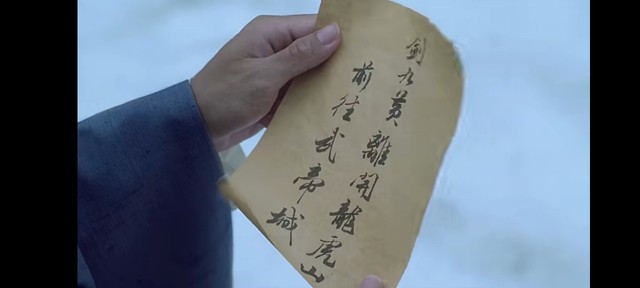 劍九黃離開龍虎山
前往武帝城